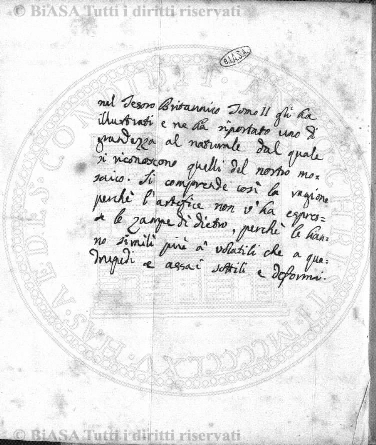 © BiASA Tutti i diritti riservati
B.I.A.S.A.
nel Tesoro Britannico Tomo II gli ha
illustrati e ne ha riportato uno di
grandezza al naturale dal quale
si riconoscono quelli del nostro mo-
saico. Si comprende così la ragione
perchè l'artefice non v'ha espres-
se le zampe di dietro, perchè le han-
no simili più a' volatili che a qua-
drupedi e assai sottili e deformi.
© BiASA Tutti i diritti riservati